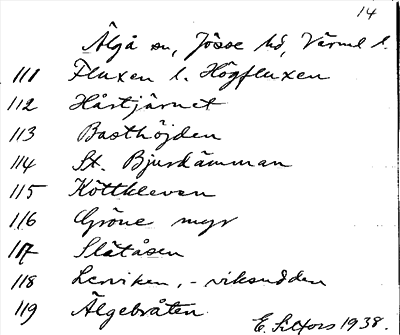 14
Älgå sn, Jösse hd, Värml l.
111 Fluxen l. Högfluxen
112 Håstjärnet
113 Basthöjden
114 St. Bjurdämman
115 Köttkleven
116 Gröne myr
117 Slätåsen
118 Lerviken, -viksudden
119 Älgebråten
E. 1938.